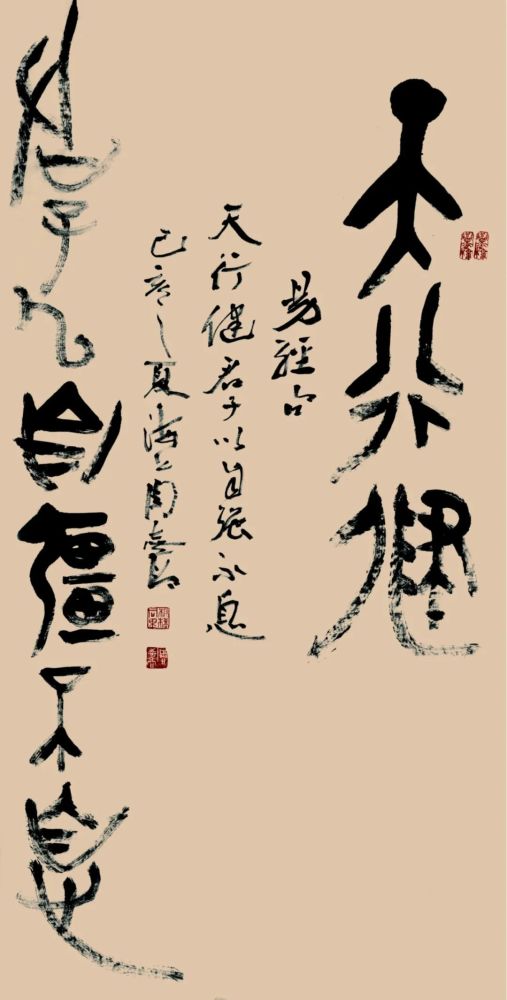 天行健
君子以自彊不息
易經句
天行健君子以自強不息
己亥之夏海上周